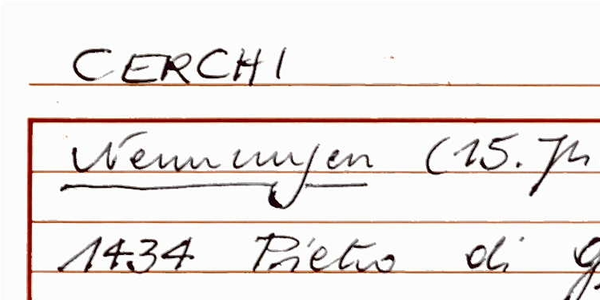 CERCHI
Nennungen (15. Jh
1434 Pietro di g